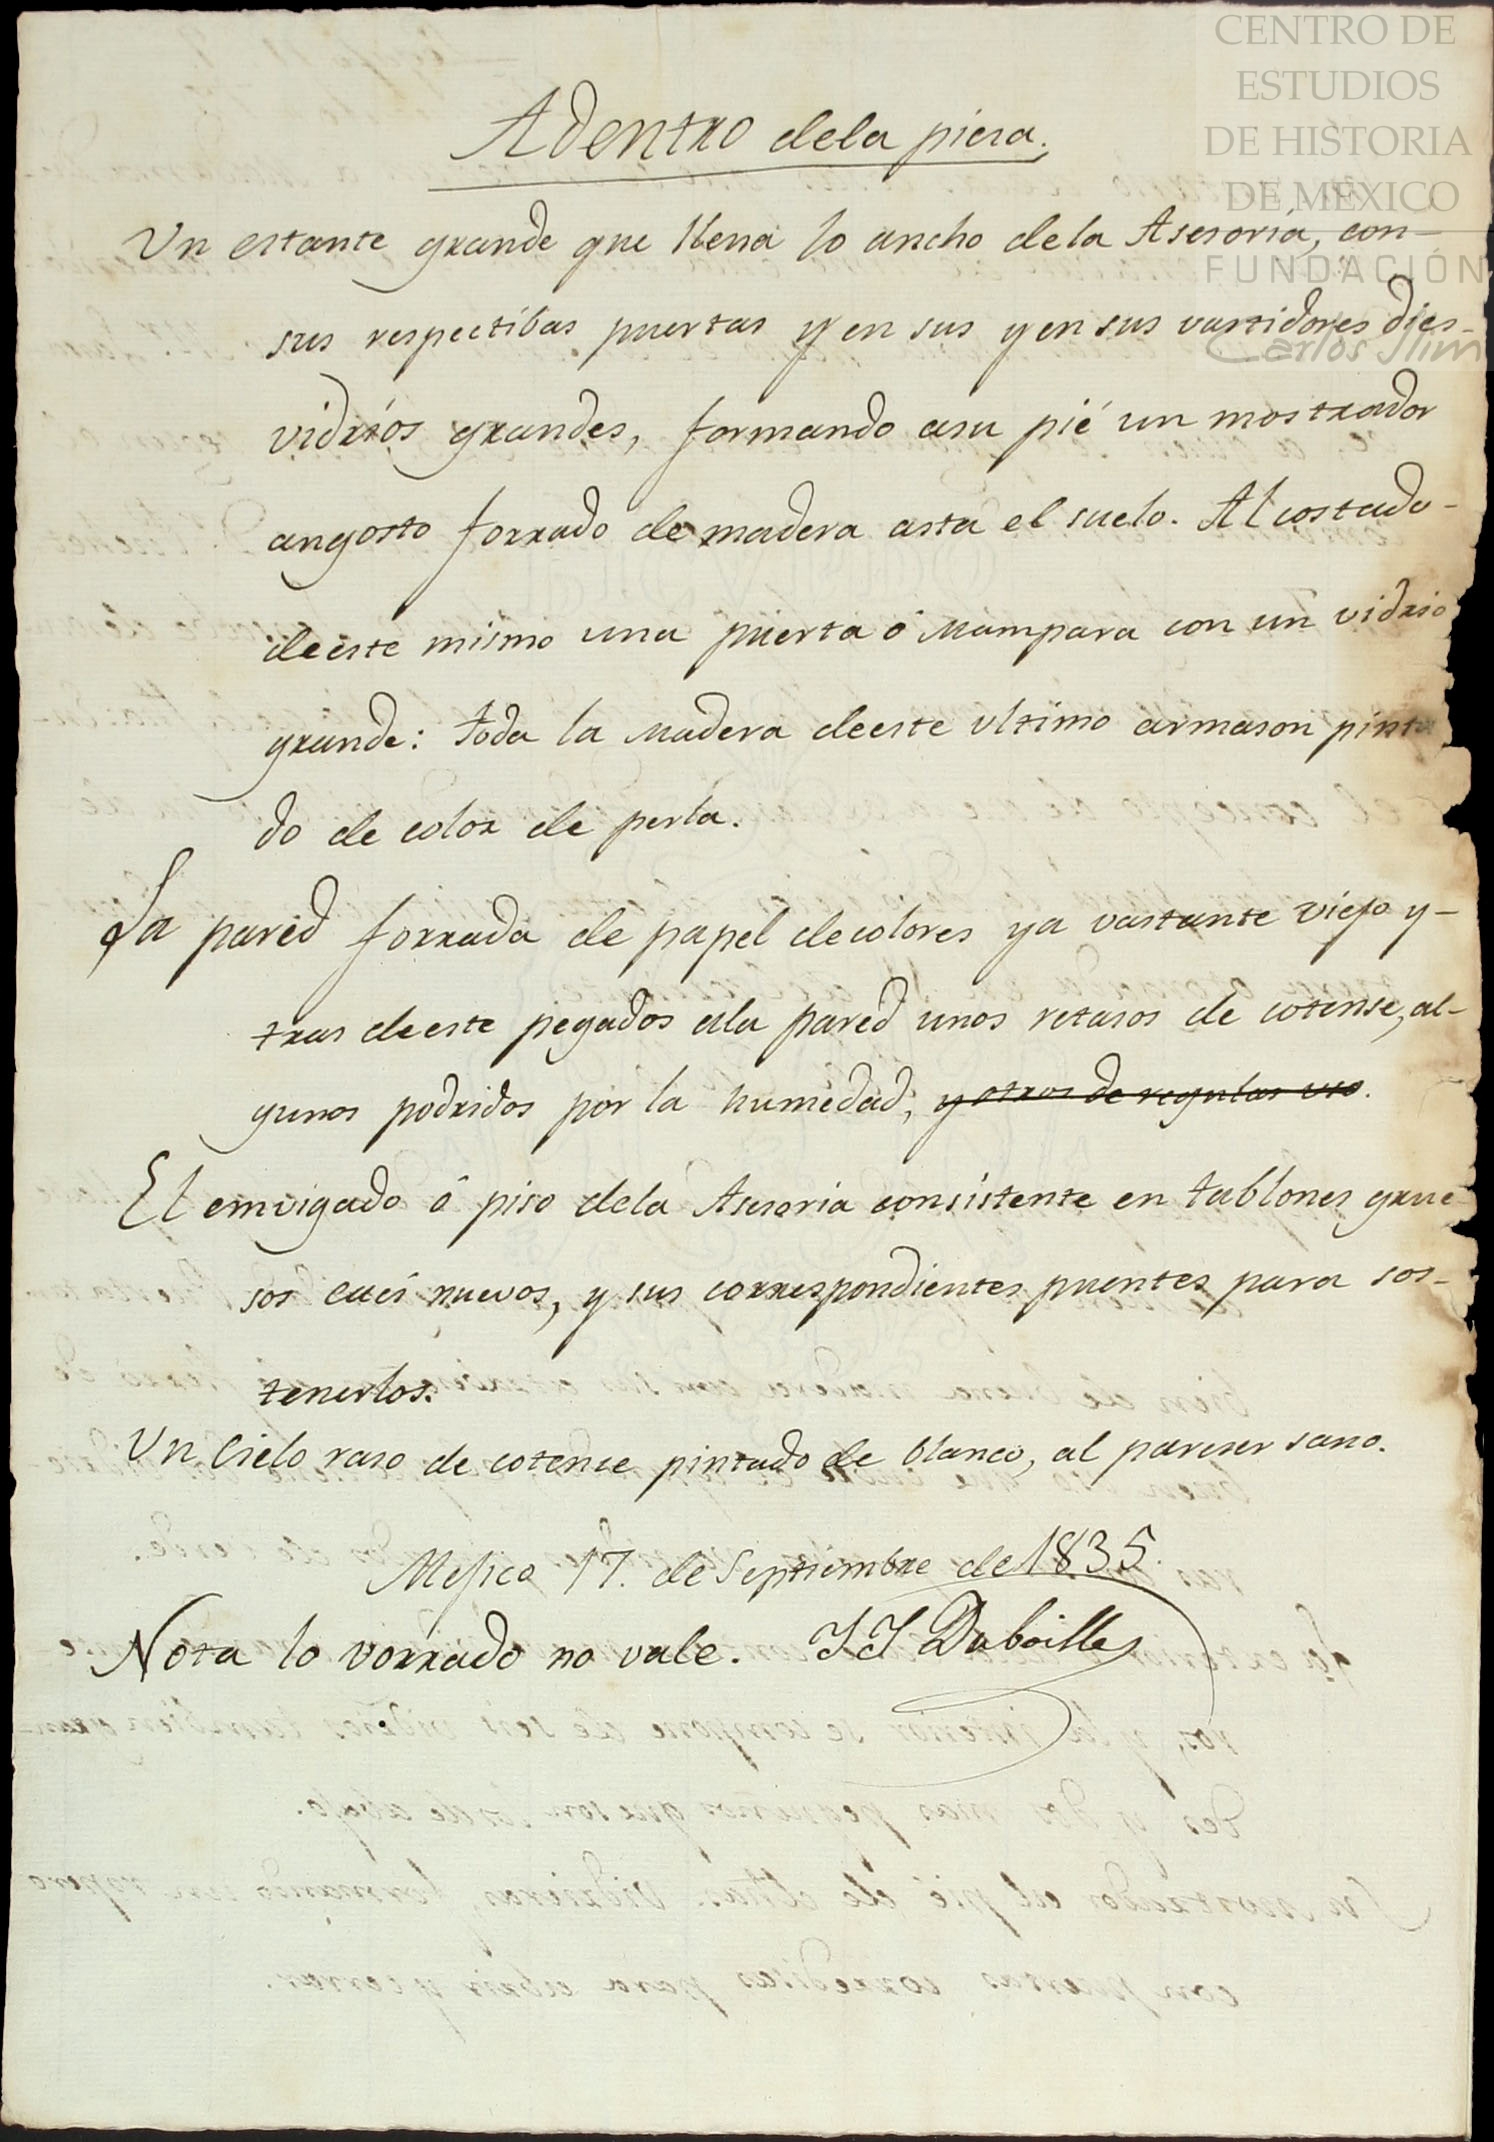 CENTRO DE
ESTUDIOS
DE HISTORIA
DE MÉXICO
FUNDACIÓN
Carlos Slim
Adentro dela piesa.
Un estante grande que llena lo ancho dela Asesoría, con-
sus respectibas puertas y en sus y en sus vastidores dies-
vidriós grandes, formando asu pié un mostrador
angosto forrado de madera asta el suelo. Al costado-
deeste mismo una puerta ó Mampara con un vidrio
grande: toda la Madera deeste ultimo armason pinta
do de color de perla.
La pared forrada de papel decolores ya vastante viejo y-
tras deeste pegados ala pared unos retasos de cotense, al-
gunos podridos por la humedad, y otros de regular uso.
El emvigado ó piso dela Asesoria consistente en tablones grue-
sos cuasi nuevos, y sus correspondientes puentes para sos-
tenerlos.
Un Cielo raso de cotense pintado de blanco, al pareser sano.
Mejico 17. de Septiembre de 1835.
Nota lo vorrado no vale. J J Duboille